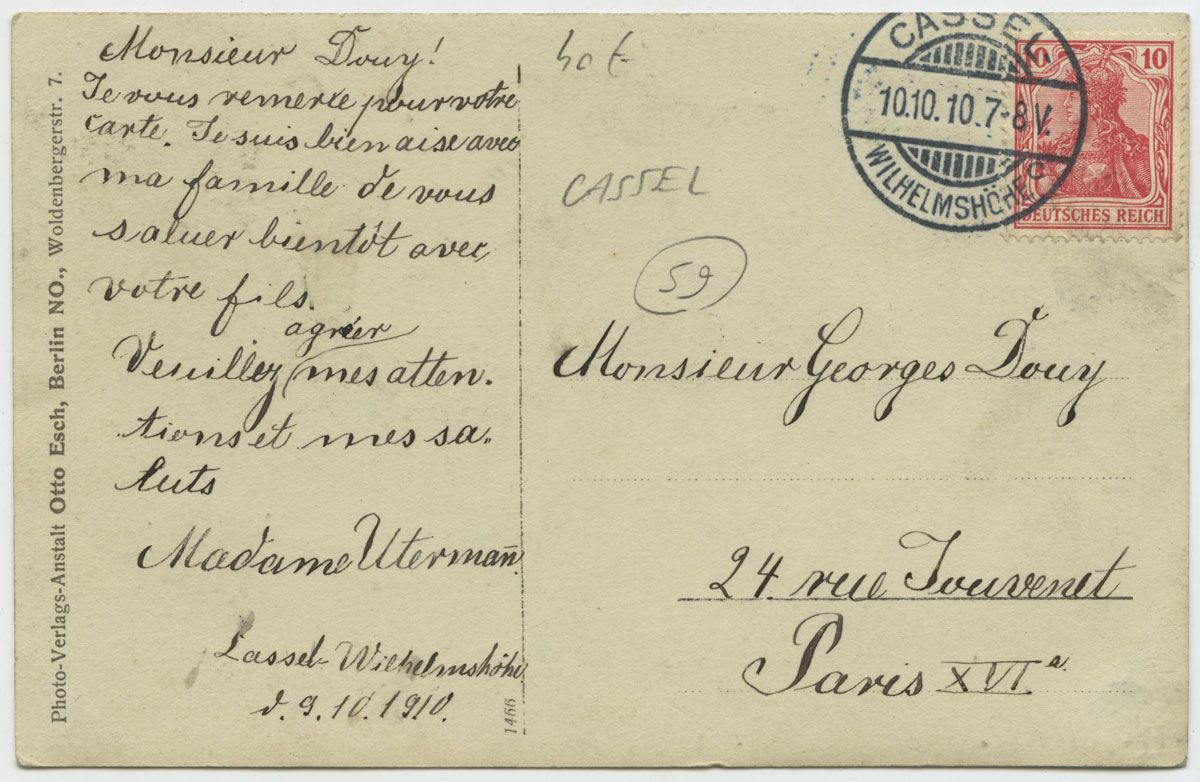 Monsieur Douy!
Je vous remercie pour votre
carte. Je suis bien aise avec
ma famille de vous
saluer bientôt avec
votre fils.
agréer
Veuillez mes atten-
tions et mes sa-
luts
Madame Utermann̄
Cassel-Wilhelmshöhe
d. 9.10.1910.
Photo-Verlags-Anstalt Otto Esch, Berlin NO., Woldenbergerstr. 7.
1466
CASSEL
59
CASSEL
10.10.10.7-8V.
WILHELMSHÖHE
C
10 10
DEUTSCHES REICH
Monsieur Georges Douy
24. rue Jouvenet
Paris XVI a.